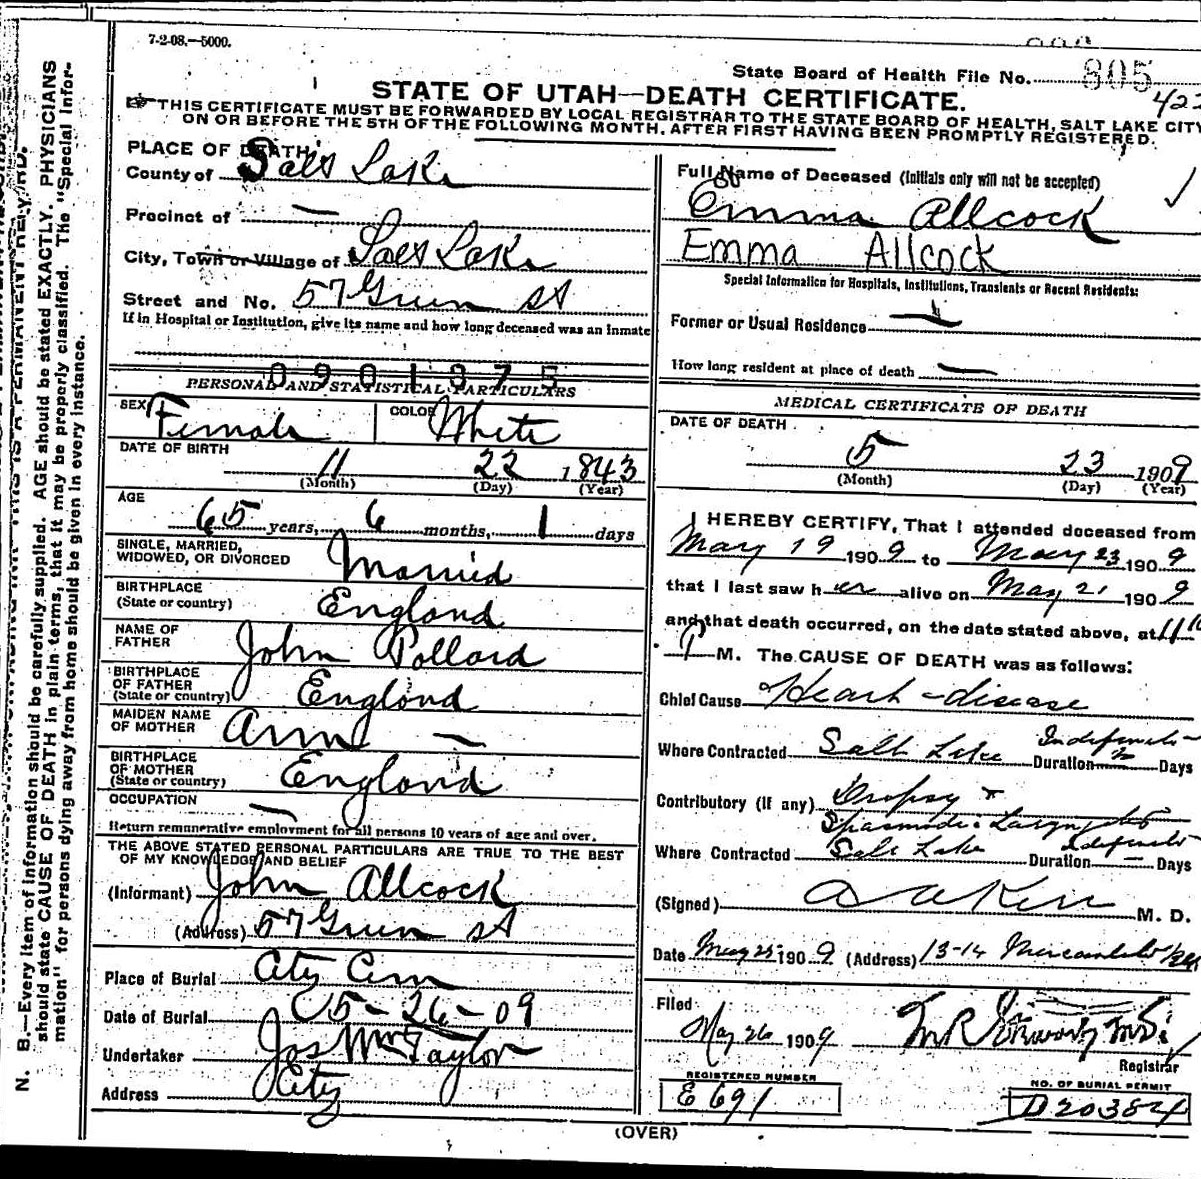 7-2-08.—5000.
State Board of Health File No. 805
STATE OF UTAH—DEATH CERTIFICATE.
THIS CERTIFICATE MUST BE FORWARDED BY LOCAL REGISTRAR TO THE STATE BOARD OF HEALTH, SALT LAKE CITY
ON OR BEFORE THE 5TH OF THE FOLLOWING MONTH. AFTER FIRST HAVING BEEN PROMPTLY REGISTERED.
PLACE OF DEATH:
County of Salt Lake
Precinct of —
City, Town or Village of Salt Lake
Street and No. 57 Green St
If in Hospital or Institution, give its name and how long deceased was an inmate
0901375
PERSONAL AND STATISTICAL PARTICULARS
SEX Female COLOR White
DATE OF BIRTH
11 22 1843
(Month) (Day) (Year)
AGE
65 years, 6 months, 1 days
SINGLE, MARRIED,
WIDOWED, OR DIVORCED Married
BIRTHPLACE
(State or country) England
NAME OF
FATHER John Pollard
BIRTHPLACE
OF FATHER
(State or country) England
MAIDEN NAME
OF MOTHER Ann —
BIRTHPLACE
OF MOTHER
(State or country) England
OCCUPATION —
Return remunerative employment for all persons 10 years of age and over.
THE ABOVE STATED PERSONAL PARTICULARS ARE TRUE TO THE BEST
OF MY KNOWLEDGE AND BELIEF
(Informant) John Allcock
(Address) 57 Green St
Place of Burial City Cem
Date of Burial 5-26-09
Undertaker Jos Wm Taylor
Address City
Full Name of Deceased (Initials only will not be accepted)
Emma Allcock
Emma Allcock
Special Information for Hospitals, Institutions, Transients or Recent Residents:
Former or Usual Residence —
How long resident at place of death —
MEDICAL CERTIFICATE OF DEATH
DATE OF DEATH
5 23 1909
(Month) (Day) (Year)
I HEREBY CERTIFY, That I attended deceased from
May 19 1909 to May 23 1909
that I last saw her alive on May 21 1909
and that death occurred, on the date stated above, at 11
P M. The CAUSE OF DEATH was as follows:
Chief Cause Heart-disease
Where Contracted Salt Lake Duration Indefinite Days
Contributory (if any) Dropsy +
Spasmodic
Where Contracted Salt Lake Duration Indefinite — Days
(Signed) M. D.
Date May 25 1909 (Address) 13-14 Mercantile
Filed
May 26 1909
Registrar
REGISTERED NUMBER
E 691
NO. OF BURIAL PERMIT
D20384
(OVER)
N. B.—Every item of information should be carefully supplied. AGE should be stated EXACTLY. PHYSICIANS
should state CAUSE OF DEATH in plain terms, that it may be properly classified. The "Special Infor-
mation" for persons dying away from home should be given in every instance.